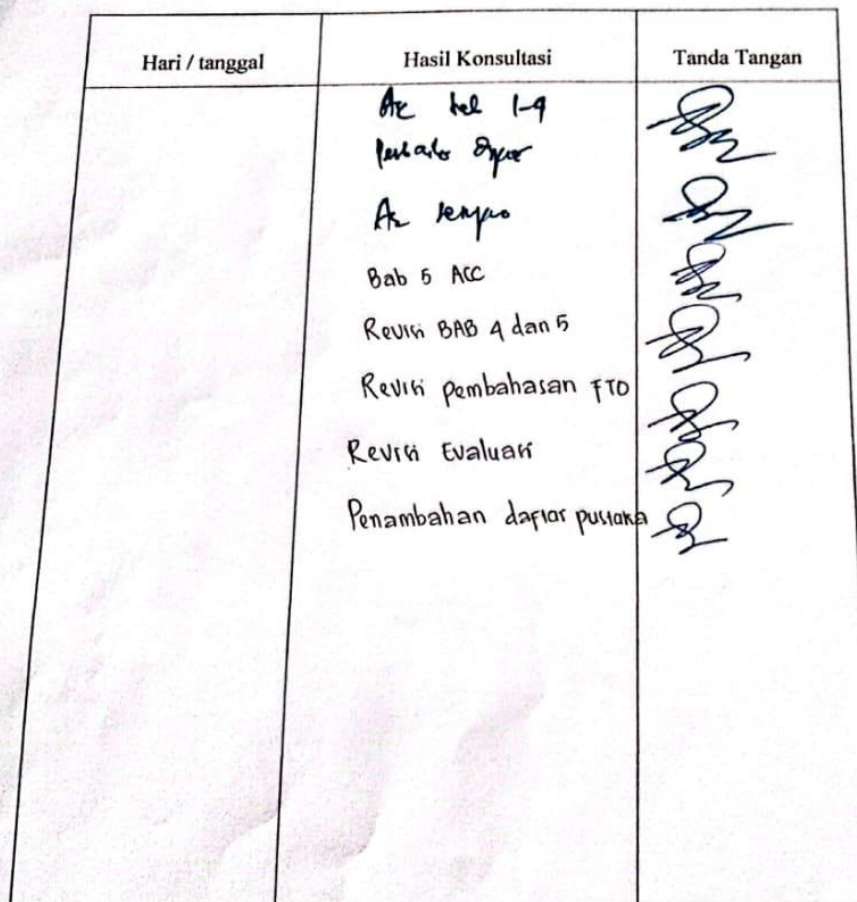 Hari / tanggal
Hasil Konsultasi
Tanda Tangan
1-4
Bab 5 ACC
Revisi BAB 4 dan 5
Revisi pembahasan FTO
Revisi Evaluasi
Penambahan daftar pustaka